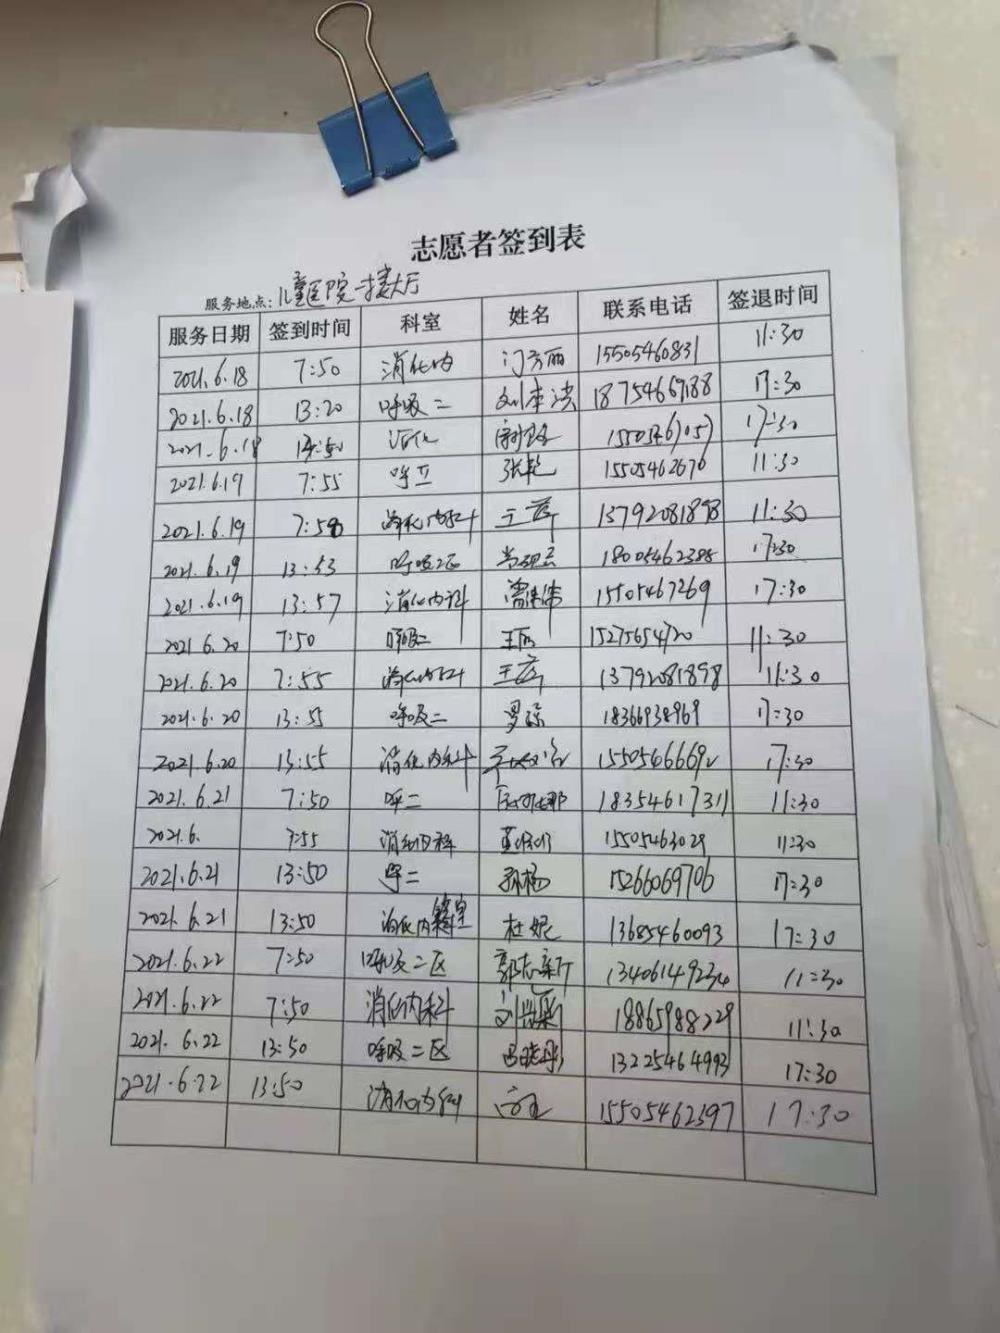 志愿者签到表
服务地点: 儿童医院一楼大厅
服务日期 签到时间 科室 姓名 联系电话 签退时间
2021.6.18 7:50 消化内 门方丽 15505460831 11:30
2021.6.18 13:20 呼吸二 18754667188 17:30
2021.6.18 消化 17:30
2021.6.19 7:55 呼二 张乾 15505462676 11:30
2021.6.19 7:50 消化内科 13792081898 11:30
2021.6.19 13:53 呼吸二区 18005462388 17:30
2021.6.19 13:57 消化内科 15505467269 17:30
2021.6.20 7:50 呼吸二 15275654720 11:30
2021.6.20 7:55 消化内科 13792081898 11:30
2021.6.20 13:55 呼吸二 18366938969 17:30
2021.6.20 13:55 消化内科 15505466692 17:30
2021.6.21 7:50 呼二 18354617311 11:30
2021.6. 7:55 消化内科 15505463029 11:30
2021.6.21 13:50 呼二 孙杨 15266069706 17:30
2021.6.21 13:50 消化内科 杜妮 13685460093 17:30
2021.6.22 7:50 呼吸二区 13406149234 11:30
2021.6.22 7:50 消化内科 18865988229 11:30
2021.6.22 13:50 呼吸二区 13225464993 17:30
2021.6.22 13:50 消化内科 15505462397 17:30